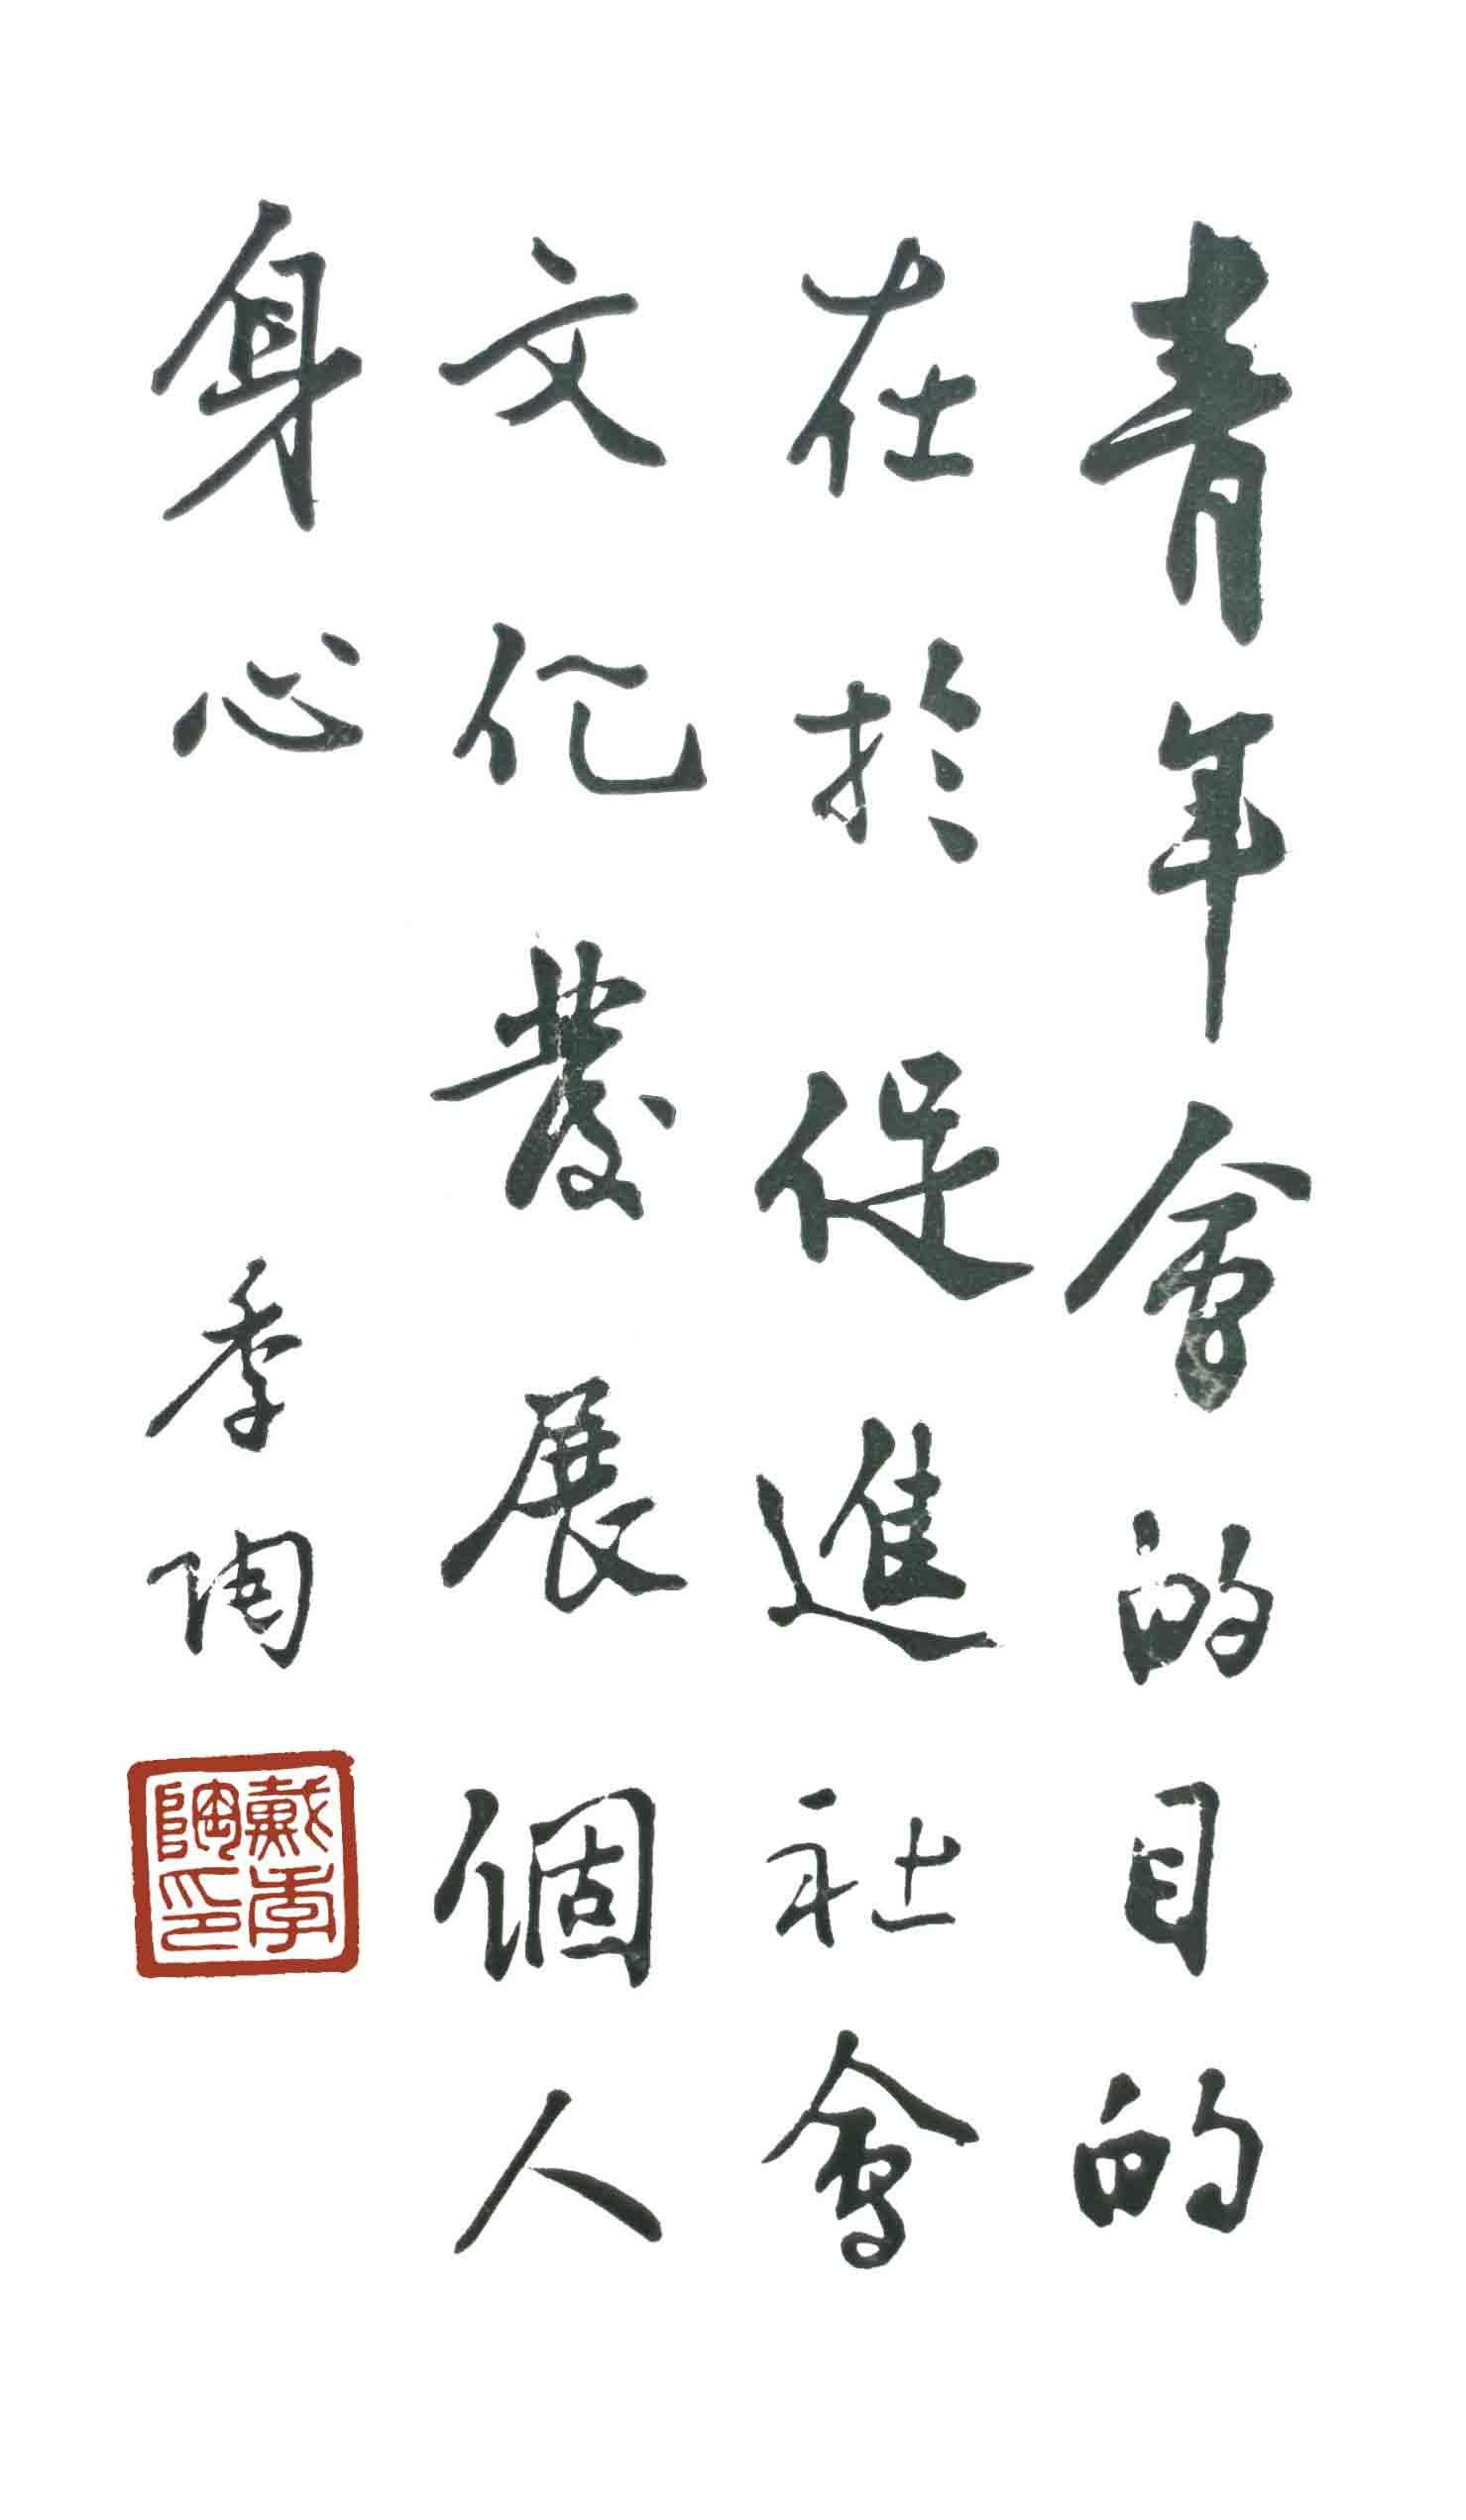 青年會的目的
在於促進社會
文化發展個人
身心
季陶
戴季陶印